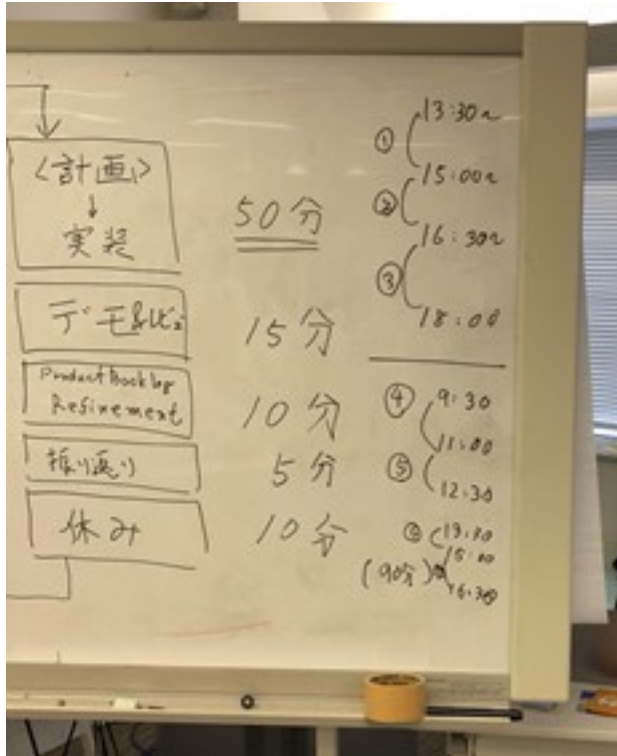 <計画>
↓
実装
50分
デモ&レビュー
15分
Product Backlog
Refinement
10分
振り返り
5分
休み
10分
① 13:30~
② 15:00~
③ 16:30~
18:00
④ 9:30
11:00
⑤
12:30
13:30
15:00
(90分)
16:30